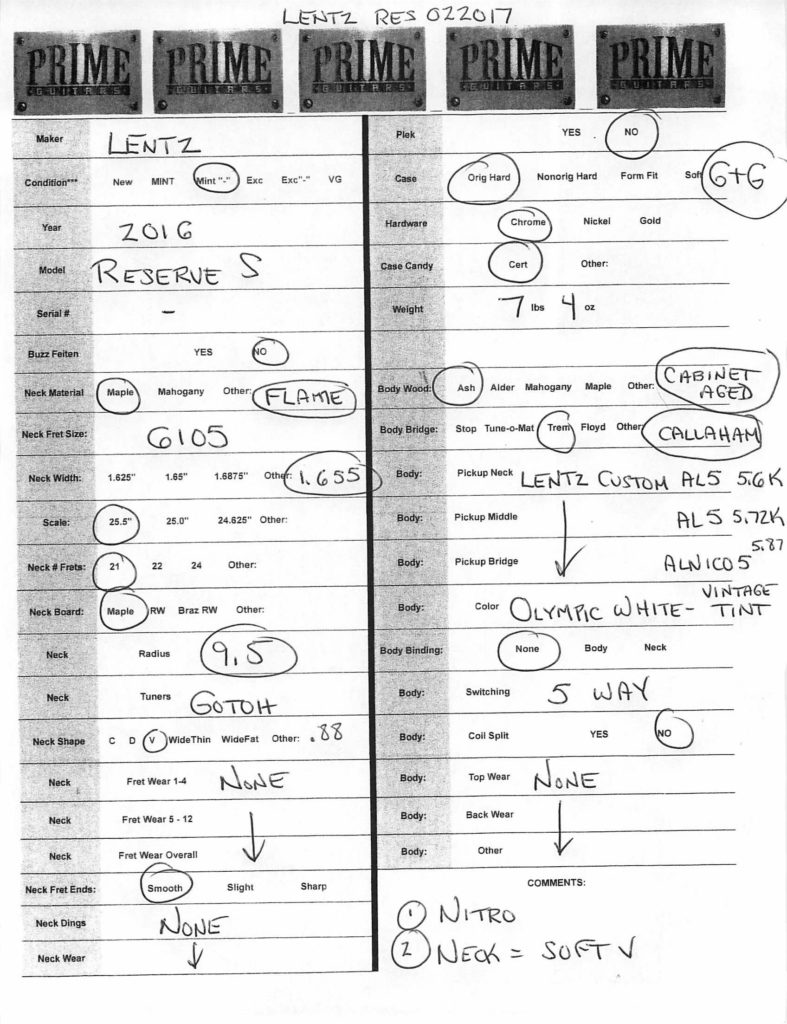 LENTZ RES 022017
PRIME GUITARS PRIME GUITARS PRIME GUITARS PRIME GUITARS PRIME GUITARS
Maker LENTZ
Condition*** New MINT Mint "-" Exc Exc"-" VG
Year 2016
Model RESERVE S
Serial # -
Buzz Feiten YES NO
Neck Material Maple Mahogany Other: FLAME
Neck Fret Size: 6105
Neck Width: 1.625" 1.65" 1.6875" Other: 1.655
Scale: 25.5" 25.0" 24.625" Other:
Neck # Frets: 21 22 24 Other:
Neck Board: Maple RW Braz RW Other:
Neck Radius 9.5
Neck Tuners GOTOH
Neck Shape C D V WideThin WideFat Other: .88
Neck Fret Wear 1-4 NONE
Neck Fret Wear 5 - 12
Neck Fret Wear Overall
Neck Fret Ends: Smooth Slight Sharp
Neck Dings NONE
Neck Wear
Plek YES NO
Case Orig Hard Nonorig Hard Form Fit Soft G+G
Hardware Chrome Nickel Gold
Case Candy Cert Other:
Weight 7 lbs 4 oz
Body Wood: Ash Alder Mahogany Maple Other: CABINET AGED
Body Bridge: Stop Tune-o-Mat Trem Floyd Other: CALLAHAM
Body: Pickup Neck LENTZ CUSTOM AL5 5.6K
Body: Pickup Middle AL5 5.72K
Body: Pickup Bridge ALNICO 5 5.87
Body: Color OLYMPIC WHITE - VINTAGE TINT
Body Binding: None Body Neck
Body: Switching 5 WAY
Body: Coil Split YES NO
Body: Top Wear NONE
Body: Back Wear
Body: Other
COMMENTS:
1 NITRO
2 NECK = SOFT V